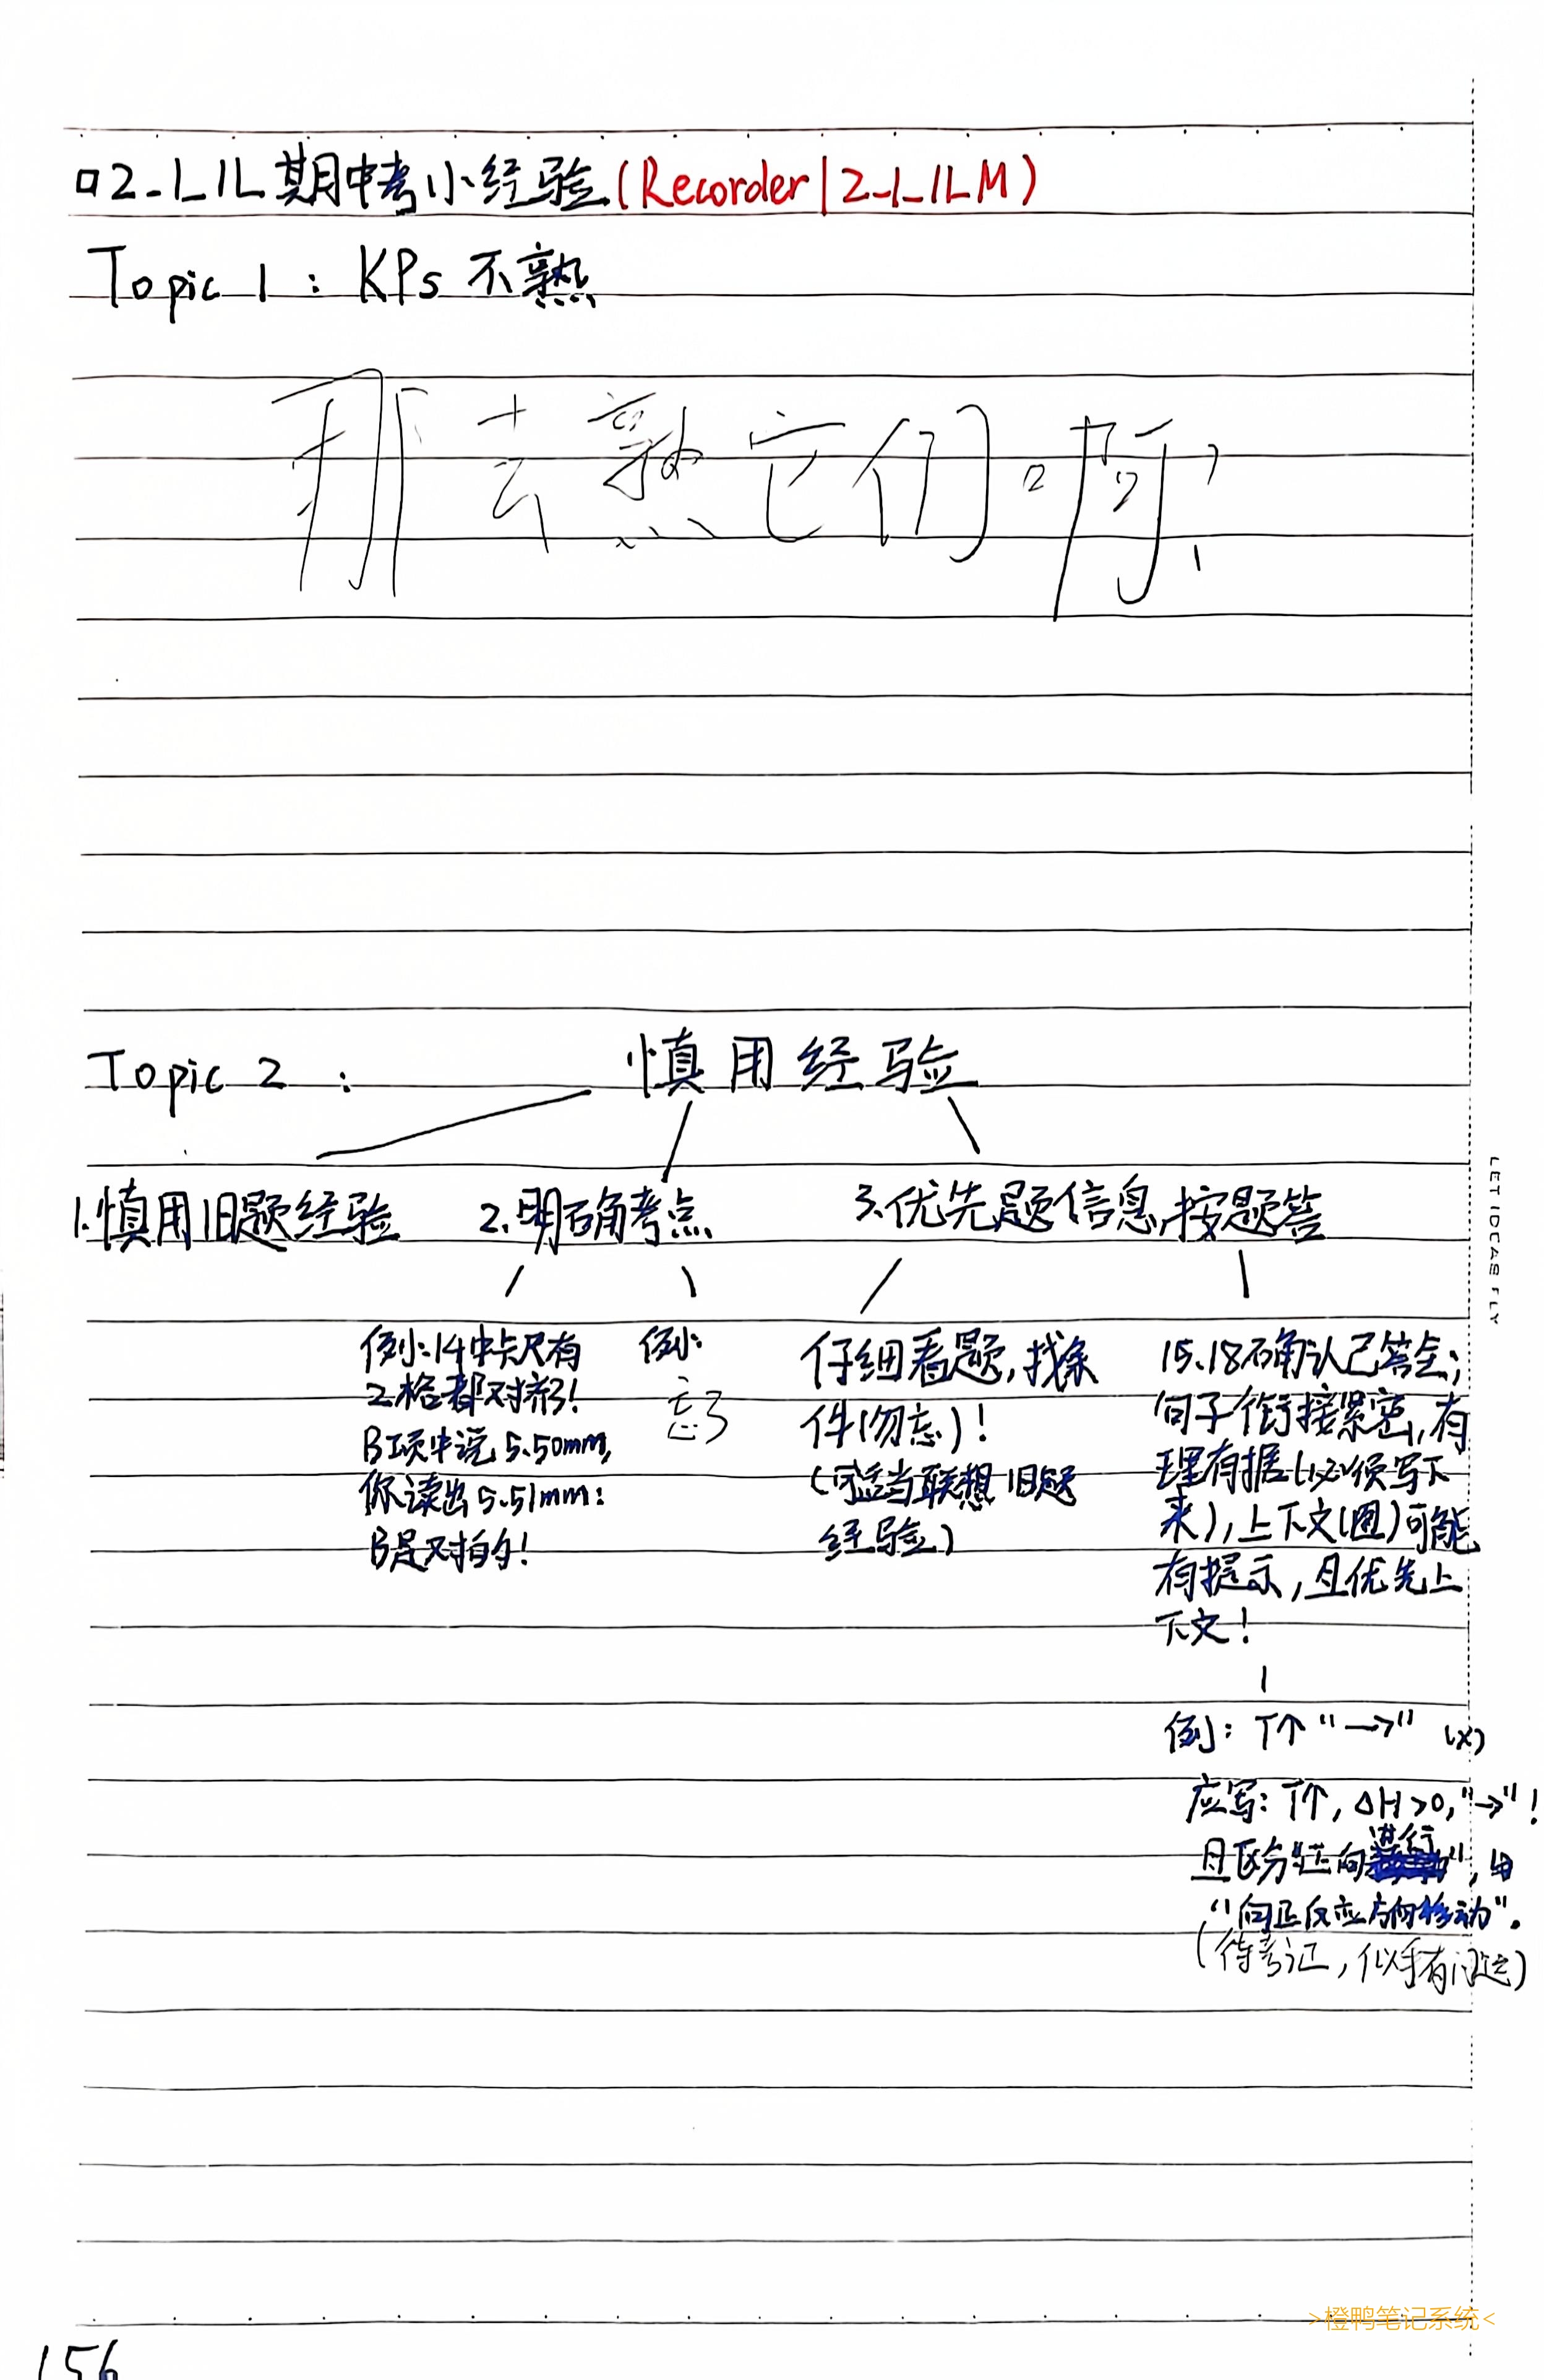 口2-1_1L期中考小经验(Recorder|2-1-1LM)
Topic 1 : KPs 不熟
那去熟它们啊!
Topic 2 : 慎用经验
1.慎用旧题经验
2.明确考点
3.优先题信息,按题答
例:14中卡尺有
2格都对齐了!
B项中说5.50mm,
你读出5.51mm:
B是对的!
例:
忘了
仔细看题,找条
件(勿忘)!
(可适当联想旧题
经验)
15.18确认已答全;
句子衔接紧密,有
理有据(必须写下
来),上下文(图)可能
有提示,且优先上
下文!
例:T个"→" (×)
应写:T个,ΔH>0,"→"!
且区分"正向进行",与
"向正反应方向移动".
(待考证,似乎有问题)
LET IDEAS FLY
>橙鸭笔记系统<
156